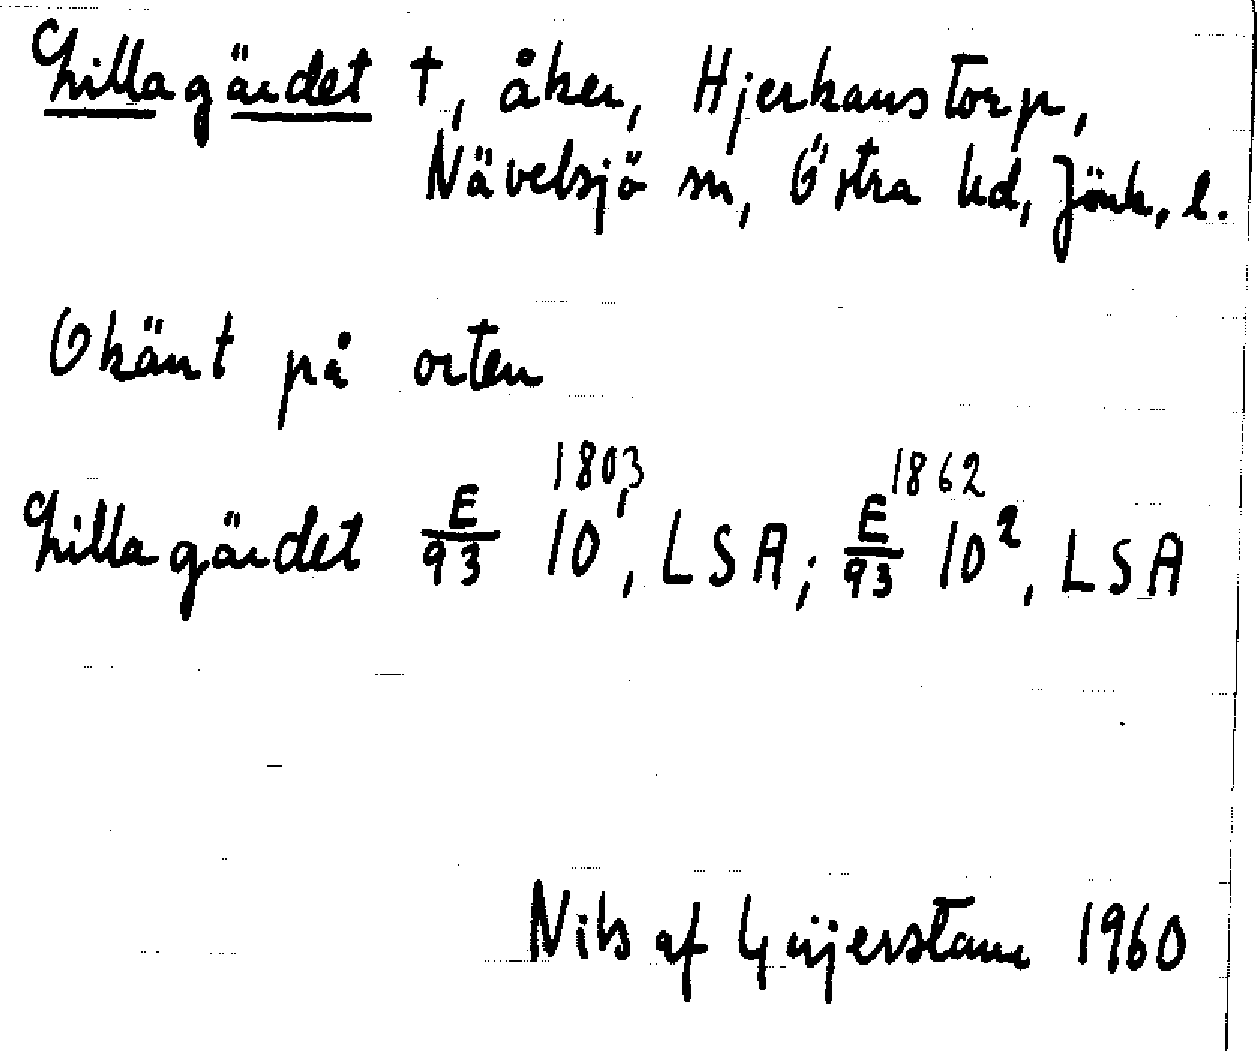 Lillagärdet †, åker, Hjerkanstorp,
Nävelsjö sn, Östra hd, Jönk. l.
Okänt på orten
Lillagärdet E/93 10 1803, LSA; E/93 10² 1862, LSA
Nils af Geijerstam 1960